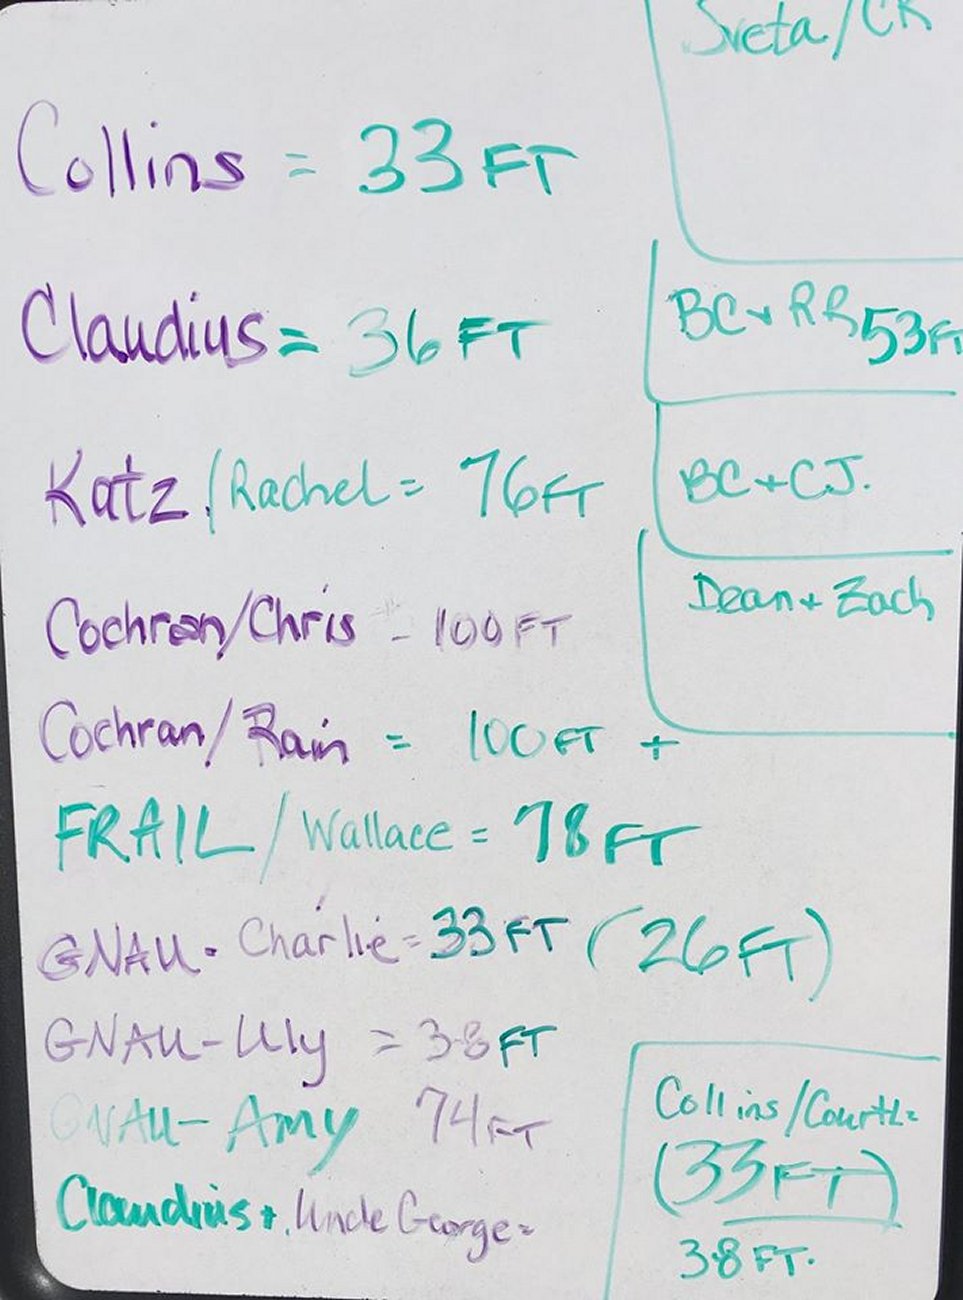 Sveta/CK
Collins = 33FT
Claudius = 36FT
BC + RR 53FT
Katz/Rachel = 76FT
BC+CJ.
Cochran/Chris - 100FT
Dean + Zach
Cochran/Rain = 100FT +
FRAIL/Wallace = 78FT
GNAU - Charlie = 33FT (26FT)
GNAU - Uly = 38FT
GNAU - Amy 74FT
Claudius + Uncle George =
Collins/Court=
(33FT)
38FT.